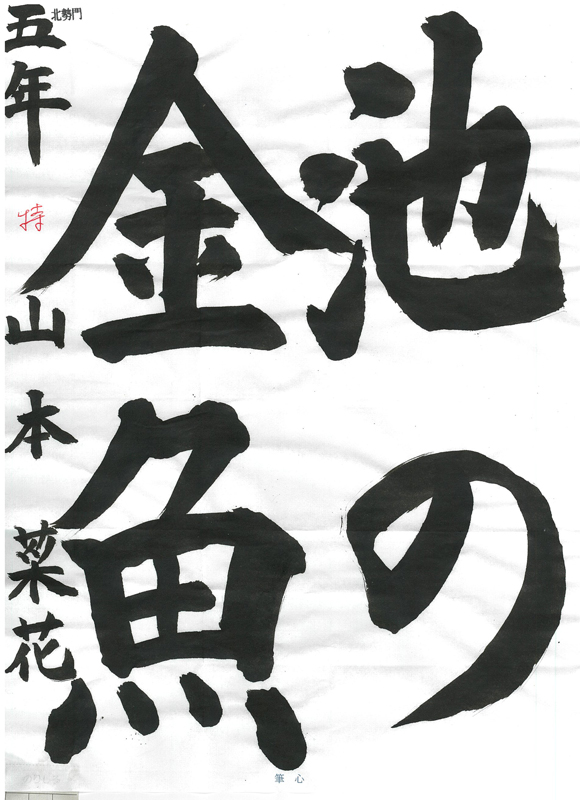 池の
金魚
北勢門
五年
特
山本菜花
筆心